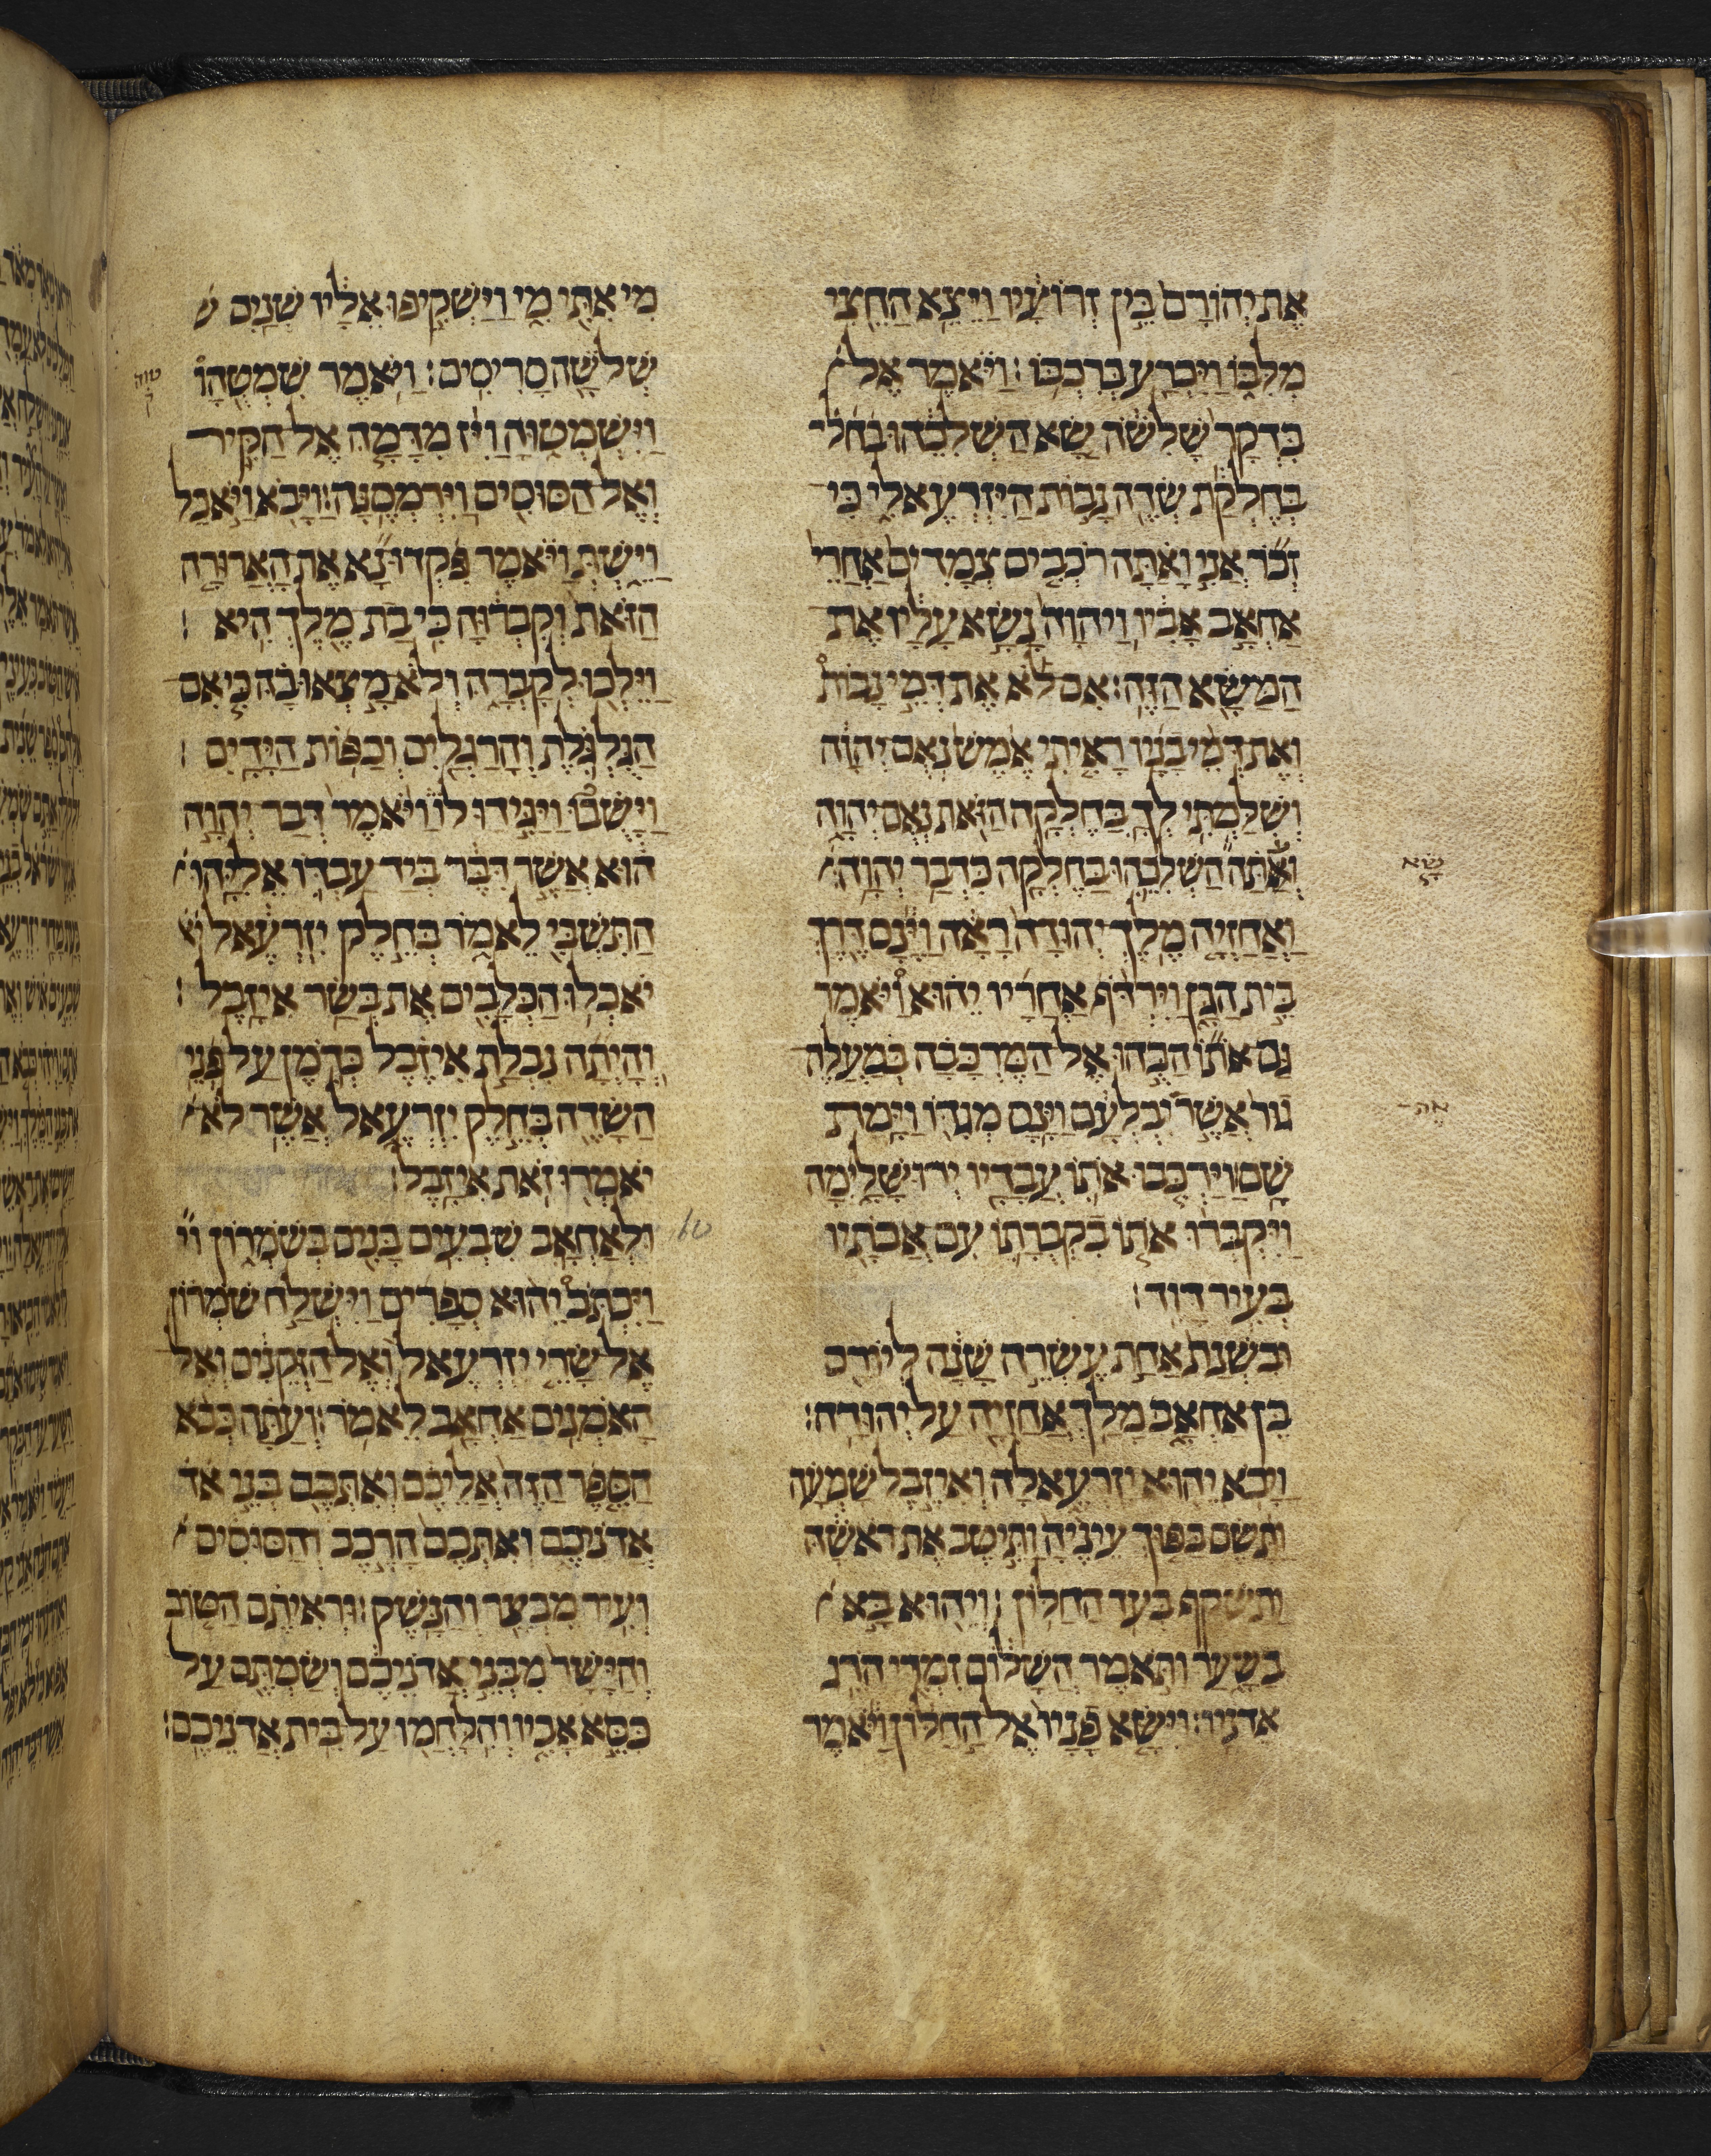 את יהורם בין זרועיו ויצא החצי
מלבו ויכרע ברכבו: ויאמר אל
בדקר שלשה שא השלכהו בחל
בחלקת שדה נבות היזרעאלי כי
זכר אני ואתה רכבים צמדים אחרי
אחאב אביו ויהוה נשא עליו את
המשא הזה: אם לא את דמי נבות
ואת דמי בניו ראיתי אמש נאם יהוה
ושלמתי לך בחלקה הזאת נאם יהוה
ואתה השלכהו בחלקה כדבר יהוה:
שא
ואחזיה מלך יהודה ראה וינס דרך
בית הגן וירדף אחריו יהוא ויאמר
גם אותו הכהו אל המרכבה במעלה
גור אשר יבלעם וינס מגדו וימת
אה
שם: וירכבו אתו עבדיו ירושלימה
ויקברו אתו בקברתו עם אבתיו
בעיר דוד:
ובשנת אחת עשרה שנה ליורם
בן אחאב מלך אחזיה על יהודה:
ויבא יהוא יזרעאלה ואיזבל שמעה
ותשם בפוך עיניה ותיטב את ראשה
ותשקף בעד החלון: ויהוא בא
בשער ותאמר השלום זמרי הרג
אדניו: וישא פניו אל החלון ויאמר
מי אתי מי וישקיפו אליו שנים ש
שלשה סריסים: ויאמר שמטהו
טוה
ק
וישמטוה ויז מדמה אל הקיר
ואל הסוסים וירמסנה: ויבא ויאכל
וישת ויאמר פקדו נא את הארורה
הזאת וקברוה כי בת מלך היא:
וילכו לקברה ולא מצאו בה כי אם
הגלגלת והרגלים וכפות הידים:
וישבו ויגידו לו ויאמר דבר יהוה
הוא אשר דבר ביד עבדו אליהו
התשבי לאמר בחלק יזרעאל יא
יאכלו הכלבים את בשר איזבל:
והיתה נבלת איזבל כדמן על פני
השדה בחלק יזרעאל אשר לא
יאמרו זאת איזבל:
10
ולאחאב שבעים בנים בשמרון וי
ויכתב יהוא ספרים וישלח שמרון
אל שרי יזרעאל ואל הזקנים ואל
האמנים אחאב לאמר: ועתה כבא
הספר הזה אליכם ואתכם בני אד
אדניכם ואתכם הרכב והסוסים
ועיר מבצר והנשק: וראיתם הטוב
והישר מבני אדניכם ושמתם על
כסא אביו והלחמו על בית אדניכם: